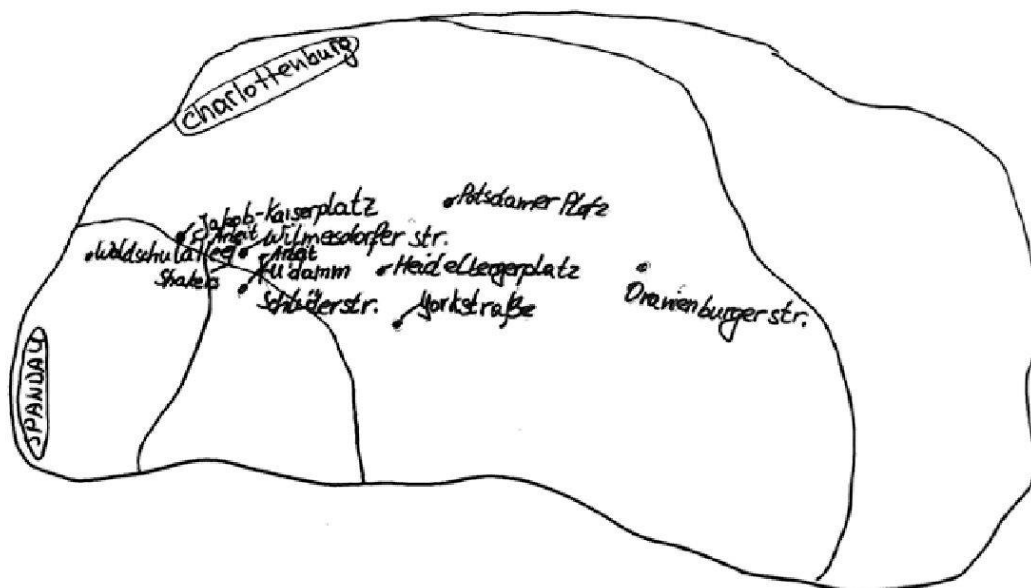 Charlottenburg
Potsdamer Platz
Jakob-Kaiserplatz
Arbeit
Wilmersdorfer str.
Waldschulallee
Arbeit
Ku'damm
Heidelbergerplatz
Schlüterstr.
Yorkstraße
Oranienburgerstr.
SPANDAU